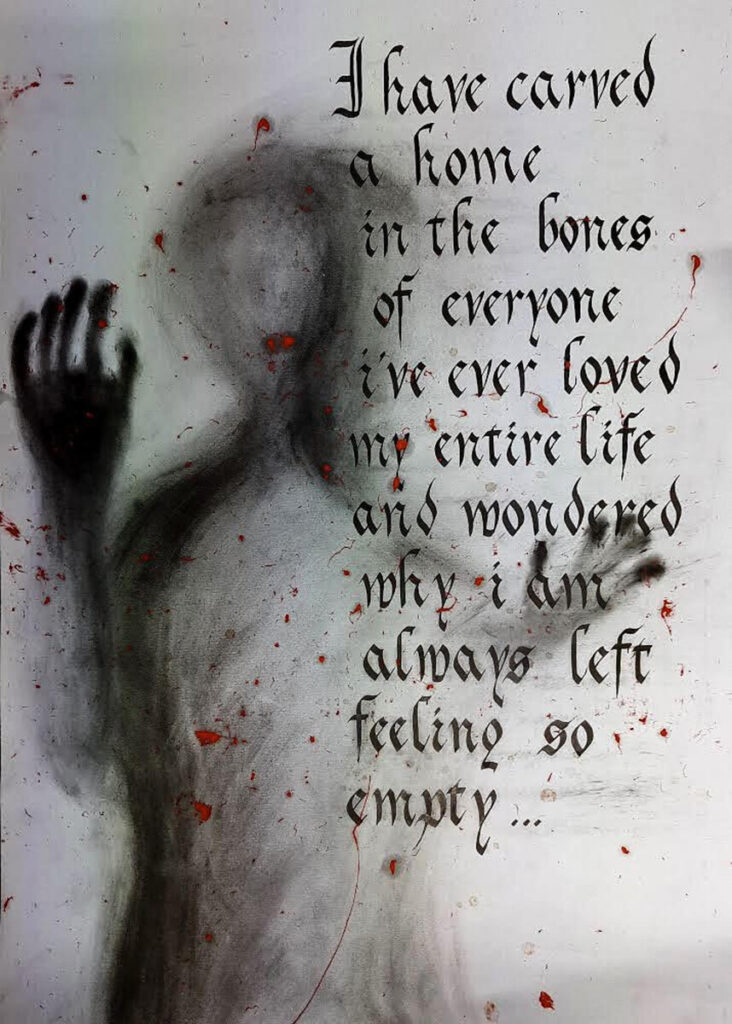 I have carved
a home
in the bones
of everyone
i've ever loved
my entire life
and wondered
why i am
always left
feeling so
empty...